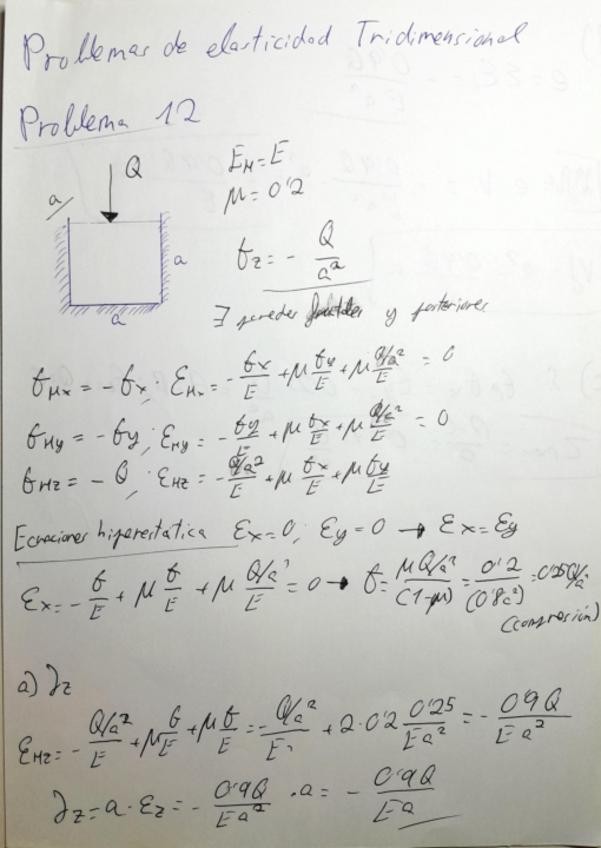 Problemas de elasticidad Tridimensional
Problema 12
Q
a
a
a
E_M = E
μ = 0'2
σ_z = - Q/a²
∃ paredes y posteriores
σ_Mx = -σ_x ; ε_Mx = - σ_x/E + μ σ_y/E + μ (Q/a²)/E = 0
σ_My = -σ_y ; ε_My = - σ_y/E + μ σ_x/E + μ (Q/a²)/E = 0
σ_Mz = -Q ; ε_Mz = - (Q/a²)/E + μ σ_x/E + μ σ_y/E
Ecuaciones hiperestática ε_x = 0 ; ε_y = 0 → ε_x = ε_y
ε_x = - σ/E + μ σ/E + μ (Q/a²)/E = 0 → σ = (μQ/a²)/(1-μ) = 0'2/(0'8a²) = 0'25Q/a²
(compresión)
a) ∂z
ε_Mz = - (Q/a²)/E + μ σ/E + μ σ/E = - (Q/a²)/E + 2·0'2 0'25/(Ea²) = - 0'9Q/(Ea²)
∂z = a · ε_z = - 0'9Q/(Ea²) · a = - 0'9Q/(Ea)